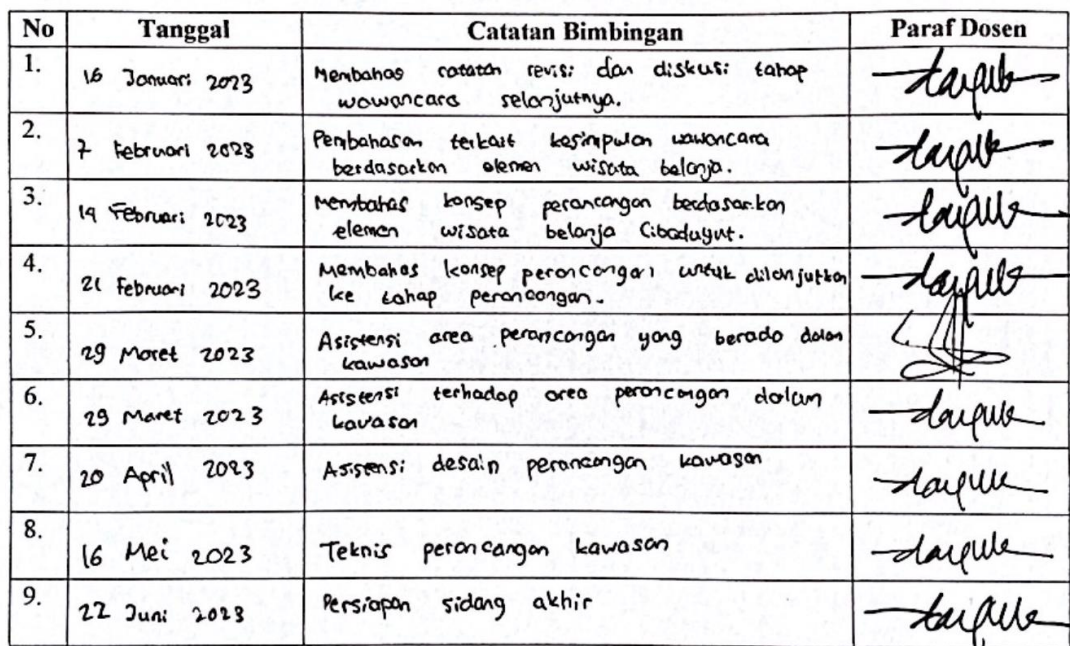 No Tanggal Catatan Bimbingan Paraf Dosen
1. 16 Januari 2023 Membahas catatan revisi dan diskusi tahap
wawancara selanjutnya.
2. 7 Februari 2023 Pembahasan terkait kesimpulan wawancara
berdasarkan elemen wisata belanja.
3. 14 Februari 2023 Membahas konsep perancangan berdasarkan
elemen wisata belanja Cibaduyut.
4. 21 Februari 2023 Membahas konsep perancangan untuk dilanjutkan
ke tahap perancangan.
5. 29 Maret 2023 Asistensi area perancangan yang berada dalam
kawasan
6. 29 Maret 2023 Asistensi terhadap area perancangan dalam
kawasan
7. 20 April 2023 Asistensi desain perancangan kawasan
8. 16 Mei 2023 Teknis perancangan kawasan
9. 22 Juni 2023 Persiapan sidang akhir